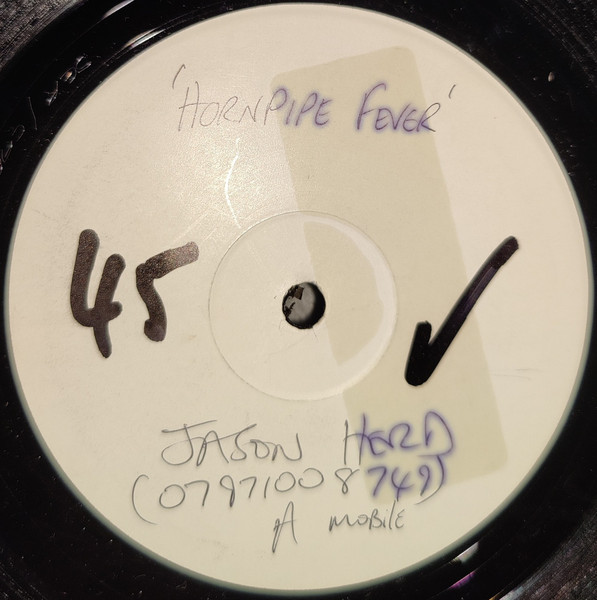 'HORNPIPE FEVER'
45
JASON HERD
(07971008749)
A MOBILE